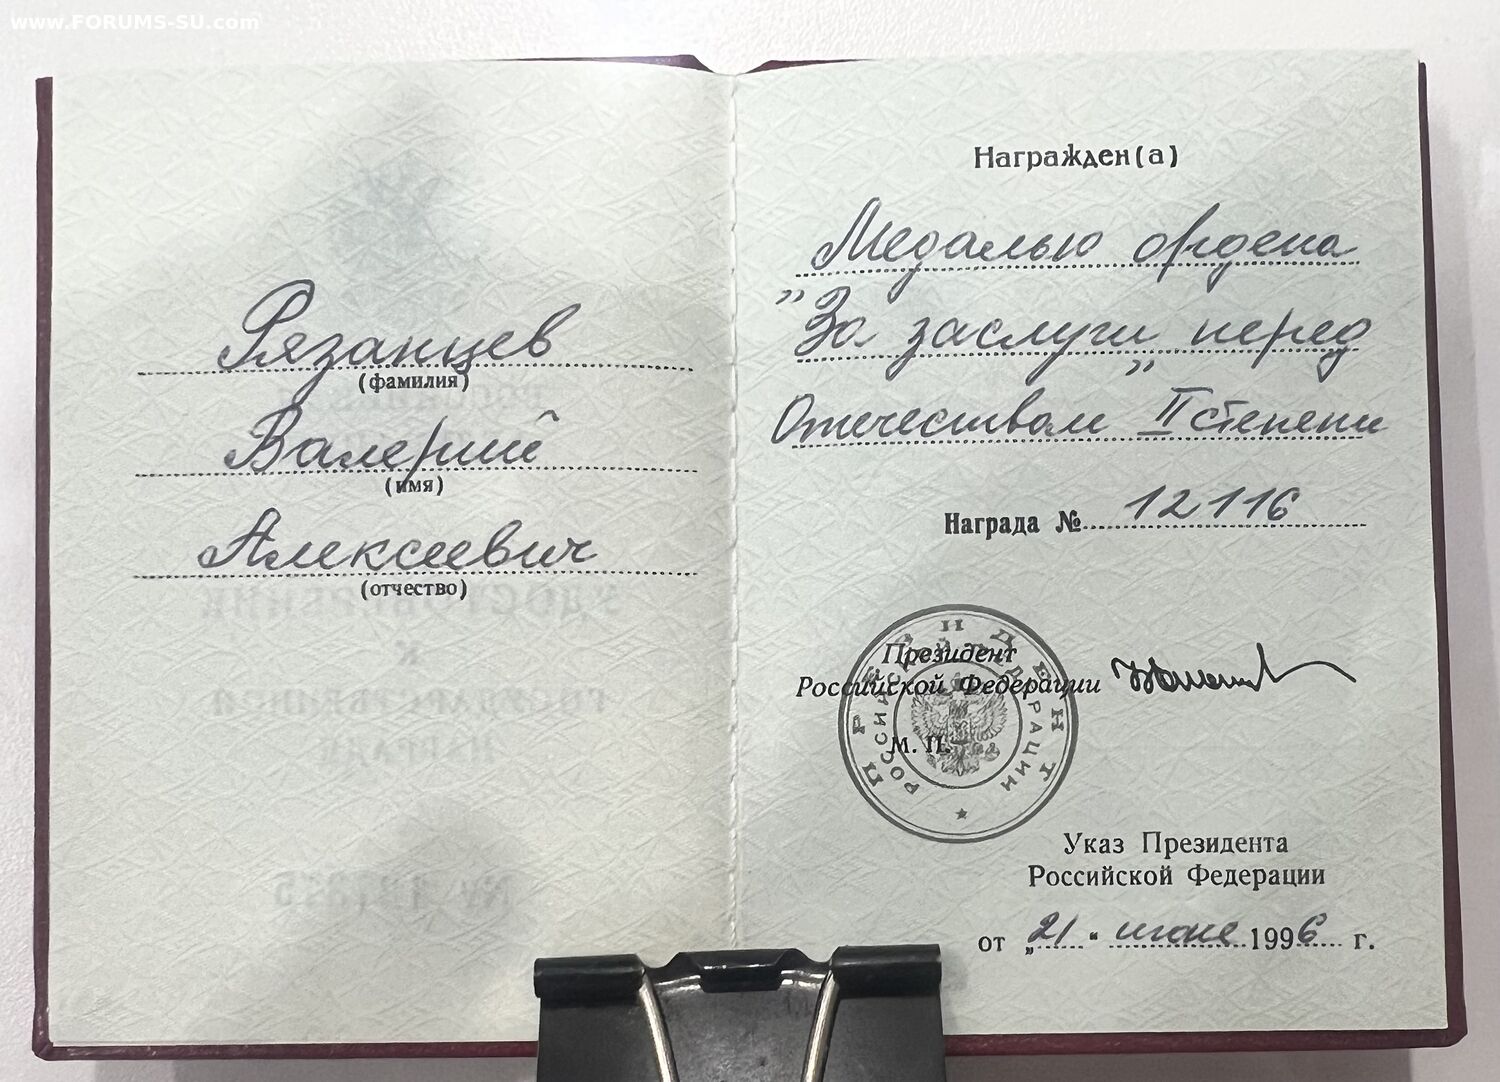 www.FORUMS-SU.com
Рязанцев
(фамилия)
Валерий
(имя)
Алексеевич
(отчество)
Награжден(а)
Медалью ордена
"За заслуги перед
Отечеством" II степени
Награда № 12116
Президент
Российской Федерации
М. П.
ПРЕЗИДЕНТ
РОССИЙСКОЙ ФЕДЕРАЦИИ
Указ Президента
Российской Федерации
от „21“ июня 1996 г.